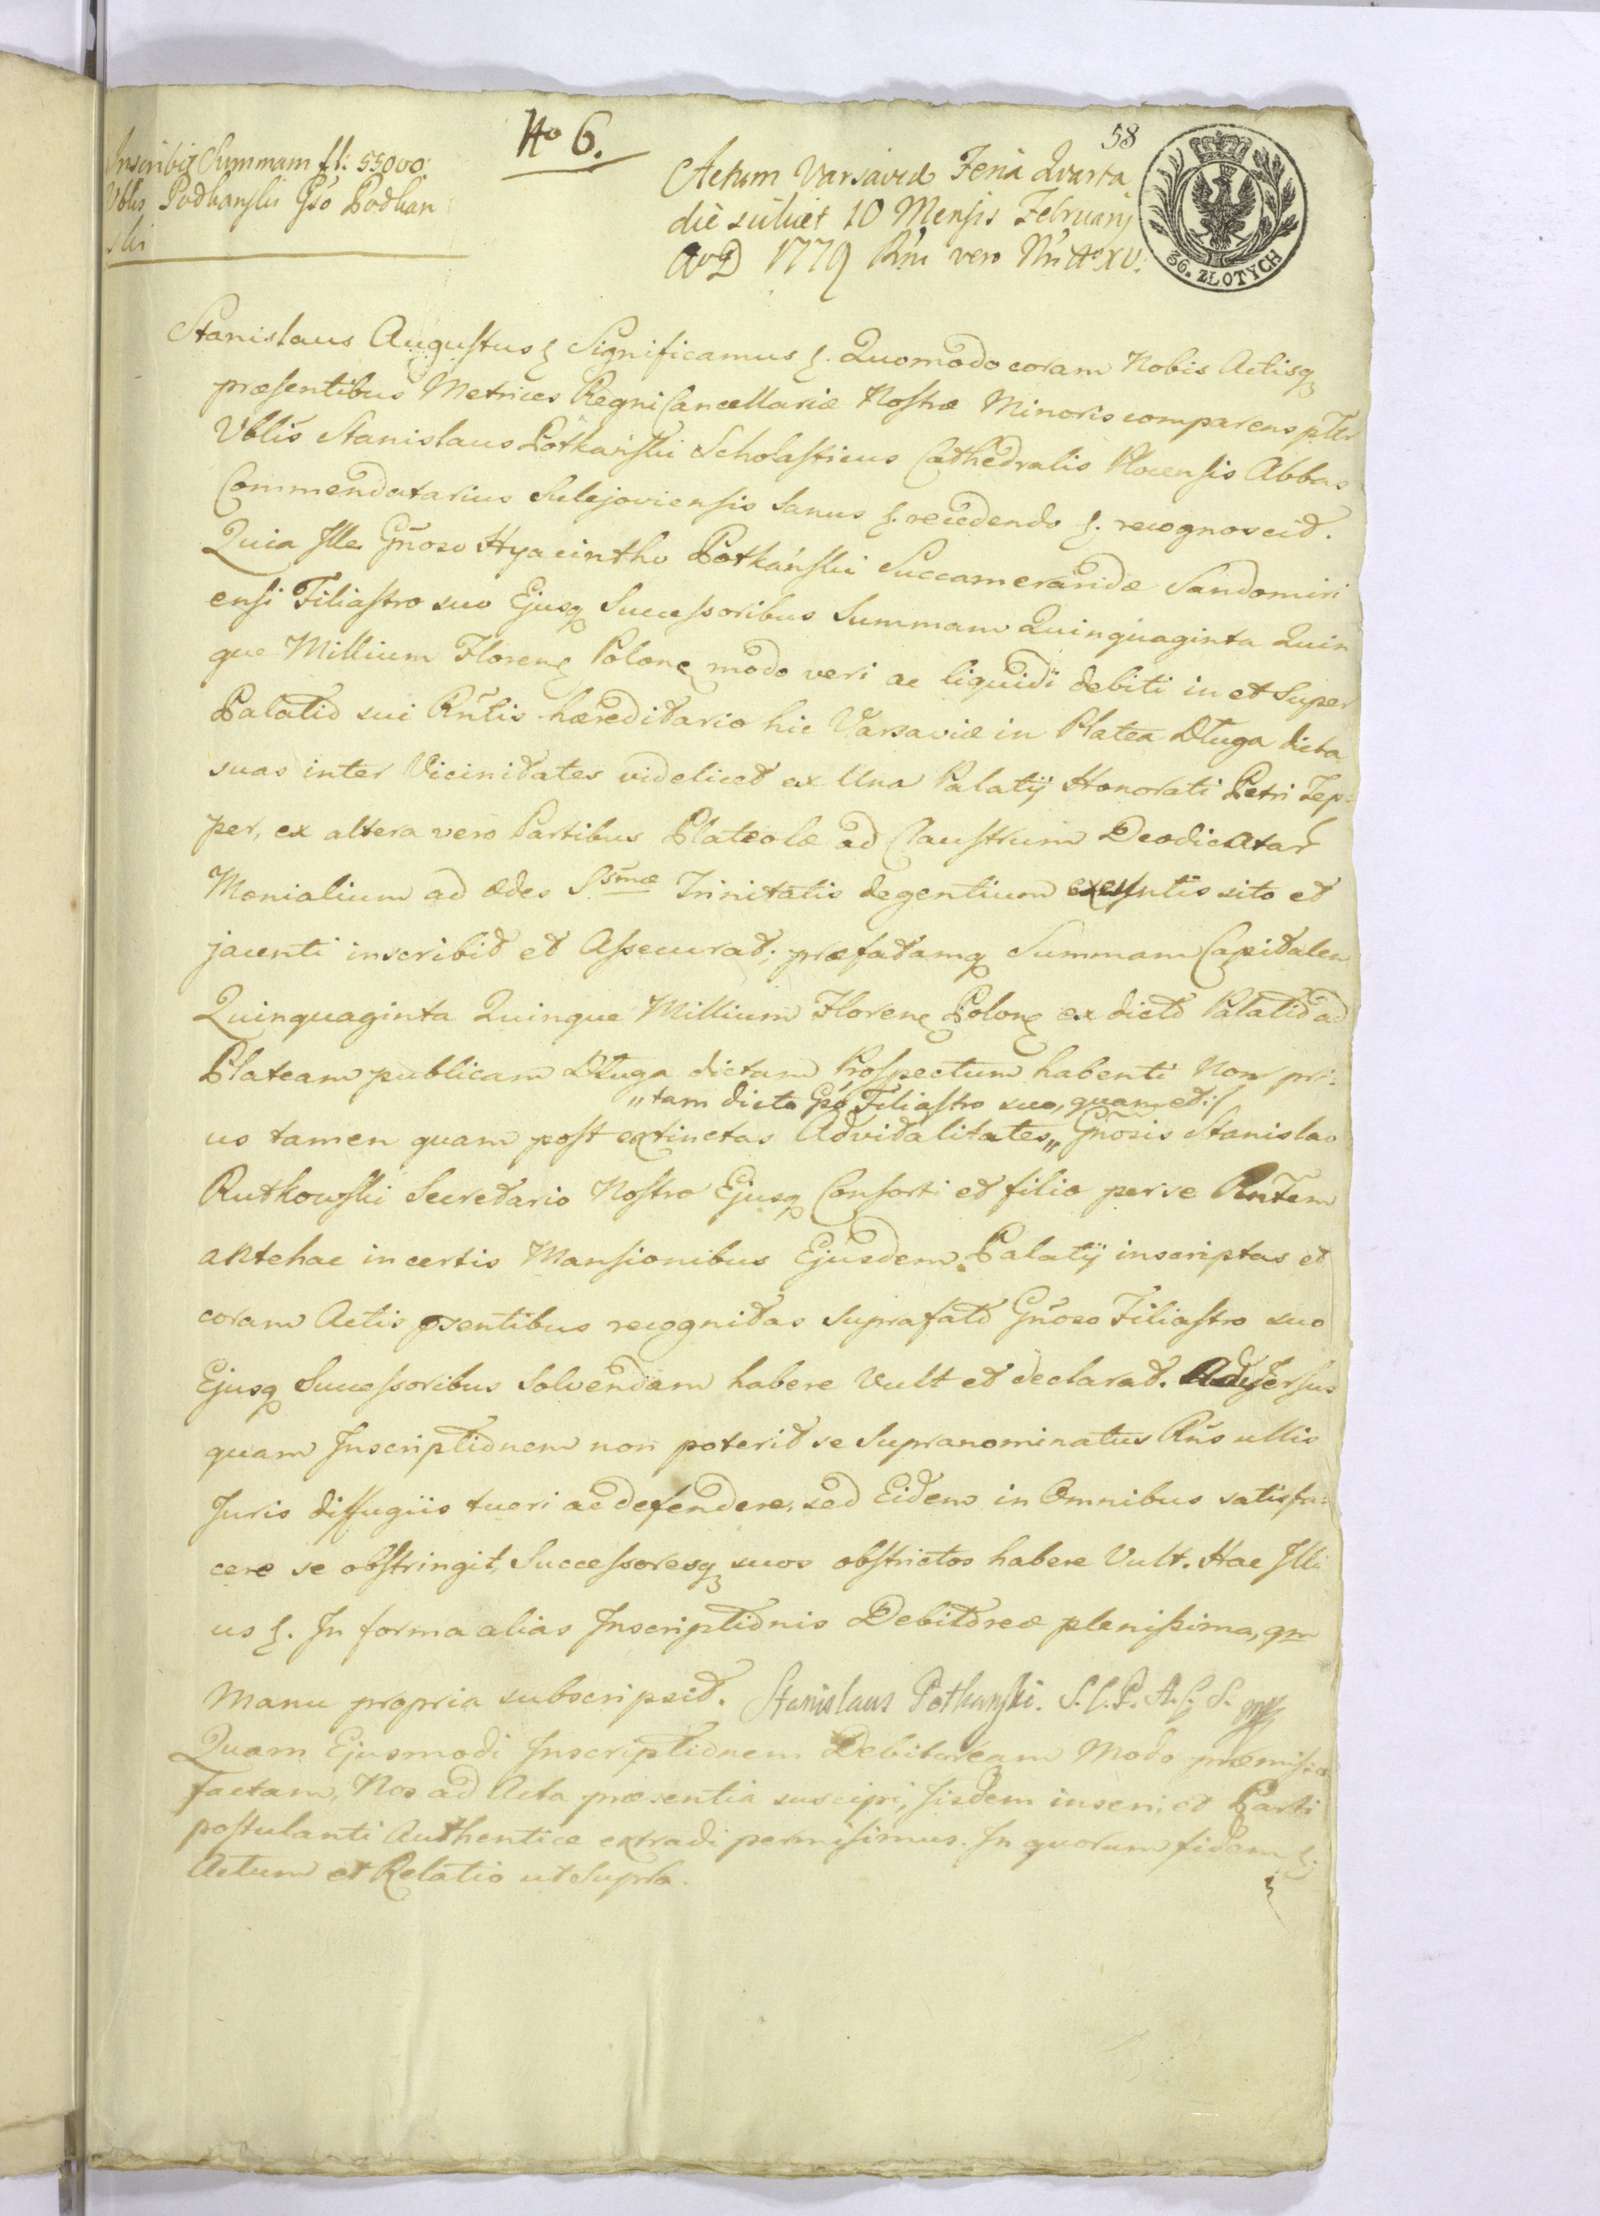 No 6.
58
36. ZŁOTYCH
Inscribit Summam fl: 55000:
Vblis Podkanski Gso Podkan
ski
Actum Varsaviæ Feria Quarta
die scilicet 10 Mensis Februarij
AoD 1779 Rni vero Nri Ao XV.
Stanislaus Augustus ꝭ Significamus ꝭ. Quomodo coram Nobis Actisq
præsentibus Metrices Regni Cancellariæ Nostræ Minoris comparens pltr
Vblis Stanislaus Potkański Scholasticus Cathedralis Plocensis Abbas
Commendatarius Sulejoviensis Sanus ꝭ. recedendo ꝭ. recognovit.
Quia Ille Gñoso Hyacintho Potkański Succameraridæ Sandomiri
ensi Filiastro suo Ejusq Successoribus Summam Quinquaginta Quin
que Millium Florenꝭ Polonꝭ modo veri ac liquidi debiti in et super
Palatio sui Rñtis hæreditario hic Varsaviæ in Platea Długa dicta
suas inter Vicinitates videlicet ex Una Palatij Honorati Petri Tep:
per, ex altera vero Partibus Plateolæ ad Claustrum Deodicatar
Monialium ad ædes Ssmæ Trinitatis degentium exeuntis sito et
jacenti inscribit et Assecurat; præfatamq Summam Capitalem
Quinquaginta Quinque Millium Florenꝭ Polonꝭ ex dicto Palatio ad
Plateam publicam Długa dictam Prospectum habenti Non pri:
"tam dicto Gso Filiastro suo, quam et:/
us tamen quam post extinctas Advitalitates" Gñosis Stanislao
Rutkowski Secretario Nostro Ejusq Consorti et filio per se Rntem
antehac in certis Mansionibus Ejusdem Palatij inscriptas et
coram Actis psentibus recognitas Suprafato Gñoso Filiastro suo
Ejusq Successoribus Solvendam habere Vult et declarat. Adversus
quam Inscriptionem non poterit se Supranominatus Rñs ullis
Juris diffugiis tueri ac defendere, sed Eidem in Omnibus satisfa:
cere se obstringit, Successoresq suos obstrictos habere Vult. Hac Illi
us ꝭ. In forma alias Inscriptionis Debitoreæ plenissima, qm
Manu propria subscripsit. Stanislaus Potkański. S. C. P. A. C. S. mp
Quam Ejusmodi Inscriptionem Debitoream Modo præmisso
factam, Nos ad Acta præsentia suscipi, iisdem inseri, et Parti
postulanti Authentice extradi permisimus. In quorum fidem ꝭ.
Actum et Relatio ut Supra.